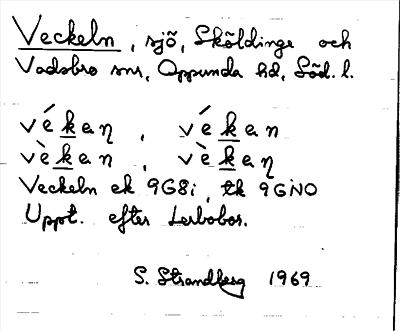 Veckeln, sjö, Sköldinge och
Vadsbro snr, Oppunda hd, Söd. l.
vékaŋ, vékan
vèkan, vèkaŋ
Veckeln ek 9G8i, tk 9GN0
Uppt. efter Lerbobor.
S. Strandberg 1969